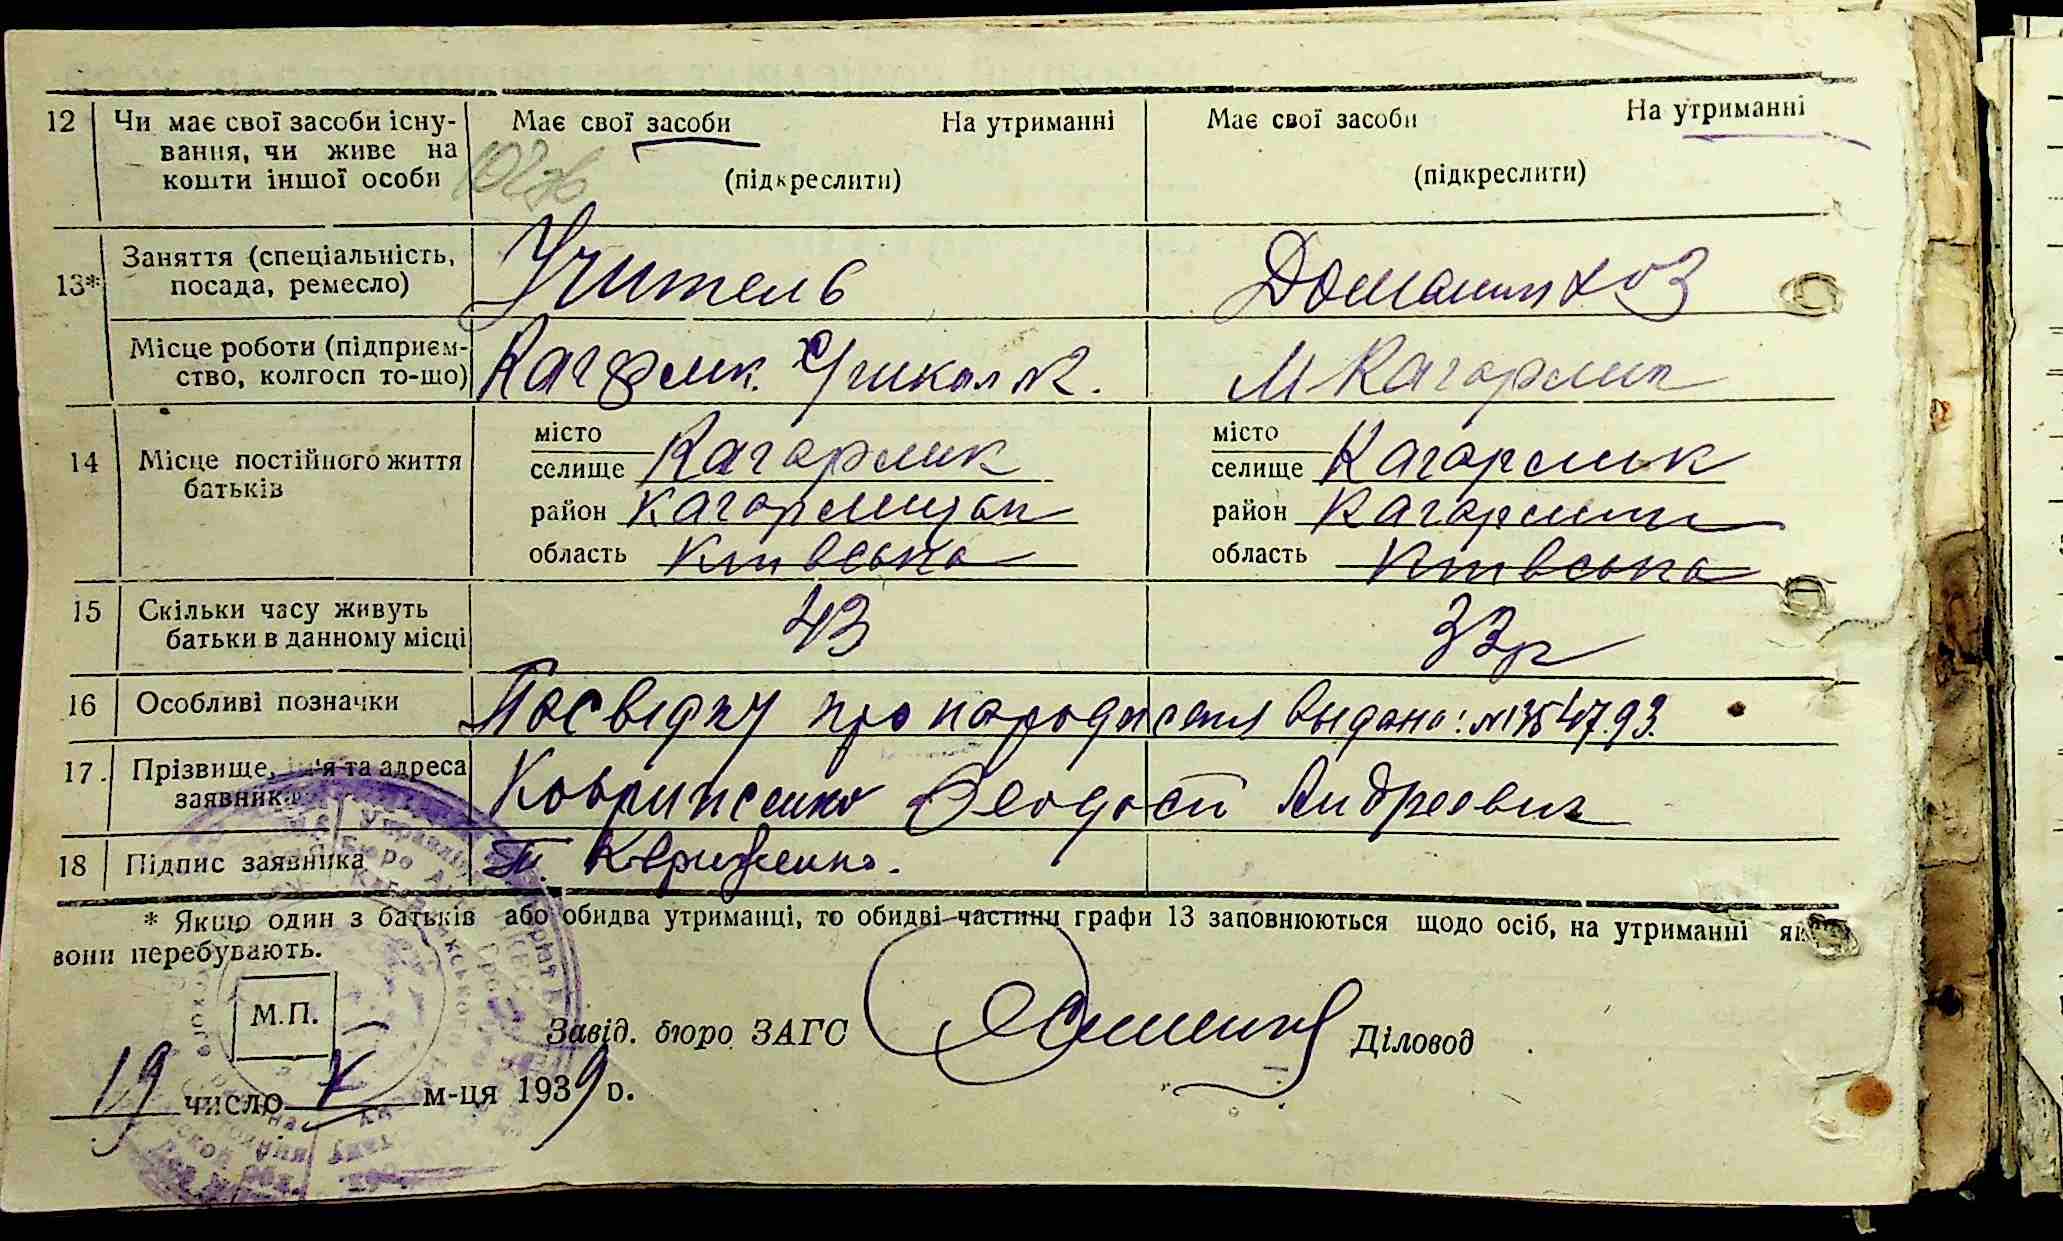 12 Чи має свої засоби існу- Має свої засоби На утриманні Має свої засоби На утриманні
вання, чи живе на
кошти іншої особи (підкреслити) (підкреслити)
13* Заняття (спеціальність, Учитель Домашн хоз
посада, ремесло)
Місце роботи (підприєм- Кагарлик. М Кагарлик
ство, колгосп то-що)
14 Місце постійного життя місто місто
батьків селище Кагарлик селище Кагарлик
район район
область Київська область Київська
15 Скільки часу живуть 43 33р
батьки в данному місці
16 Особливі позначки Посвідку про народження выдано: №
17. Прізвище, ім'я та адреса Феодосій Андреевич
заявника
18 Підпис заявника
* Якщо один з батьків або обидва утриманці, то обидві частини графи 13 заповнюються щодо осіб, на утриманні як
вони перебувають.
М.П.
Завід. бюро ЗАГС Діловод
19 число X м-ця 1939 р.